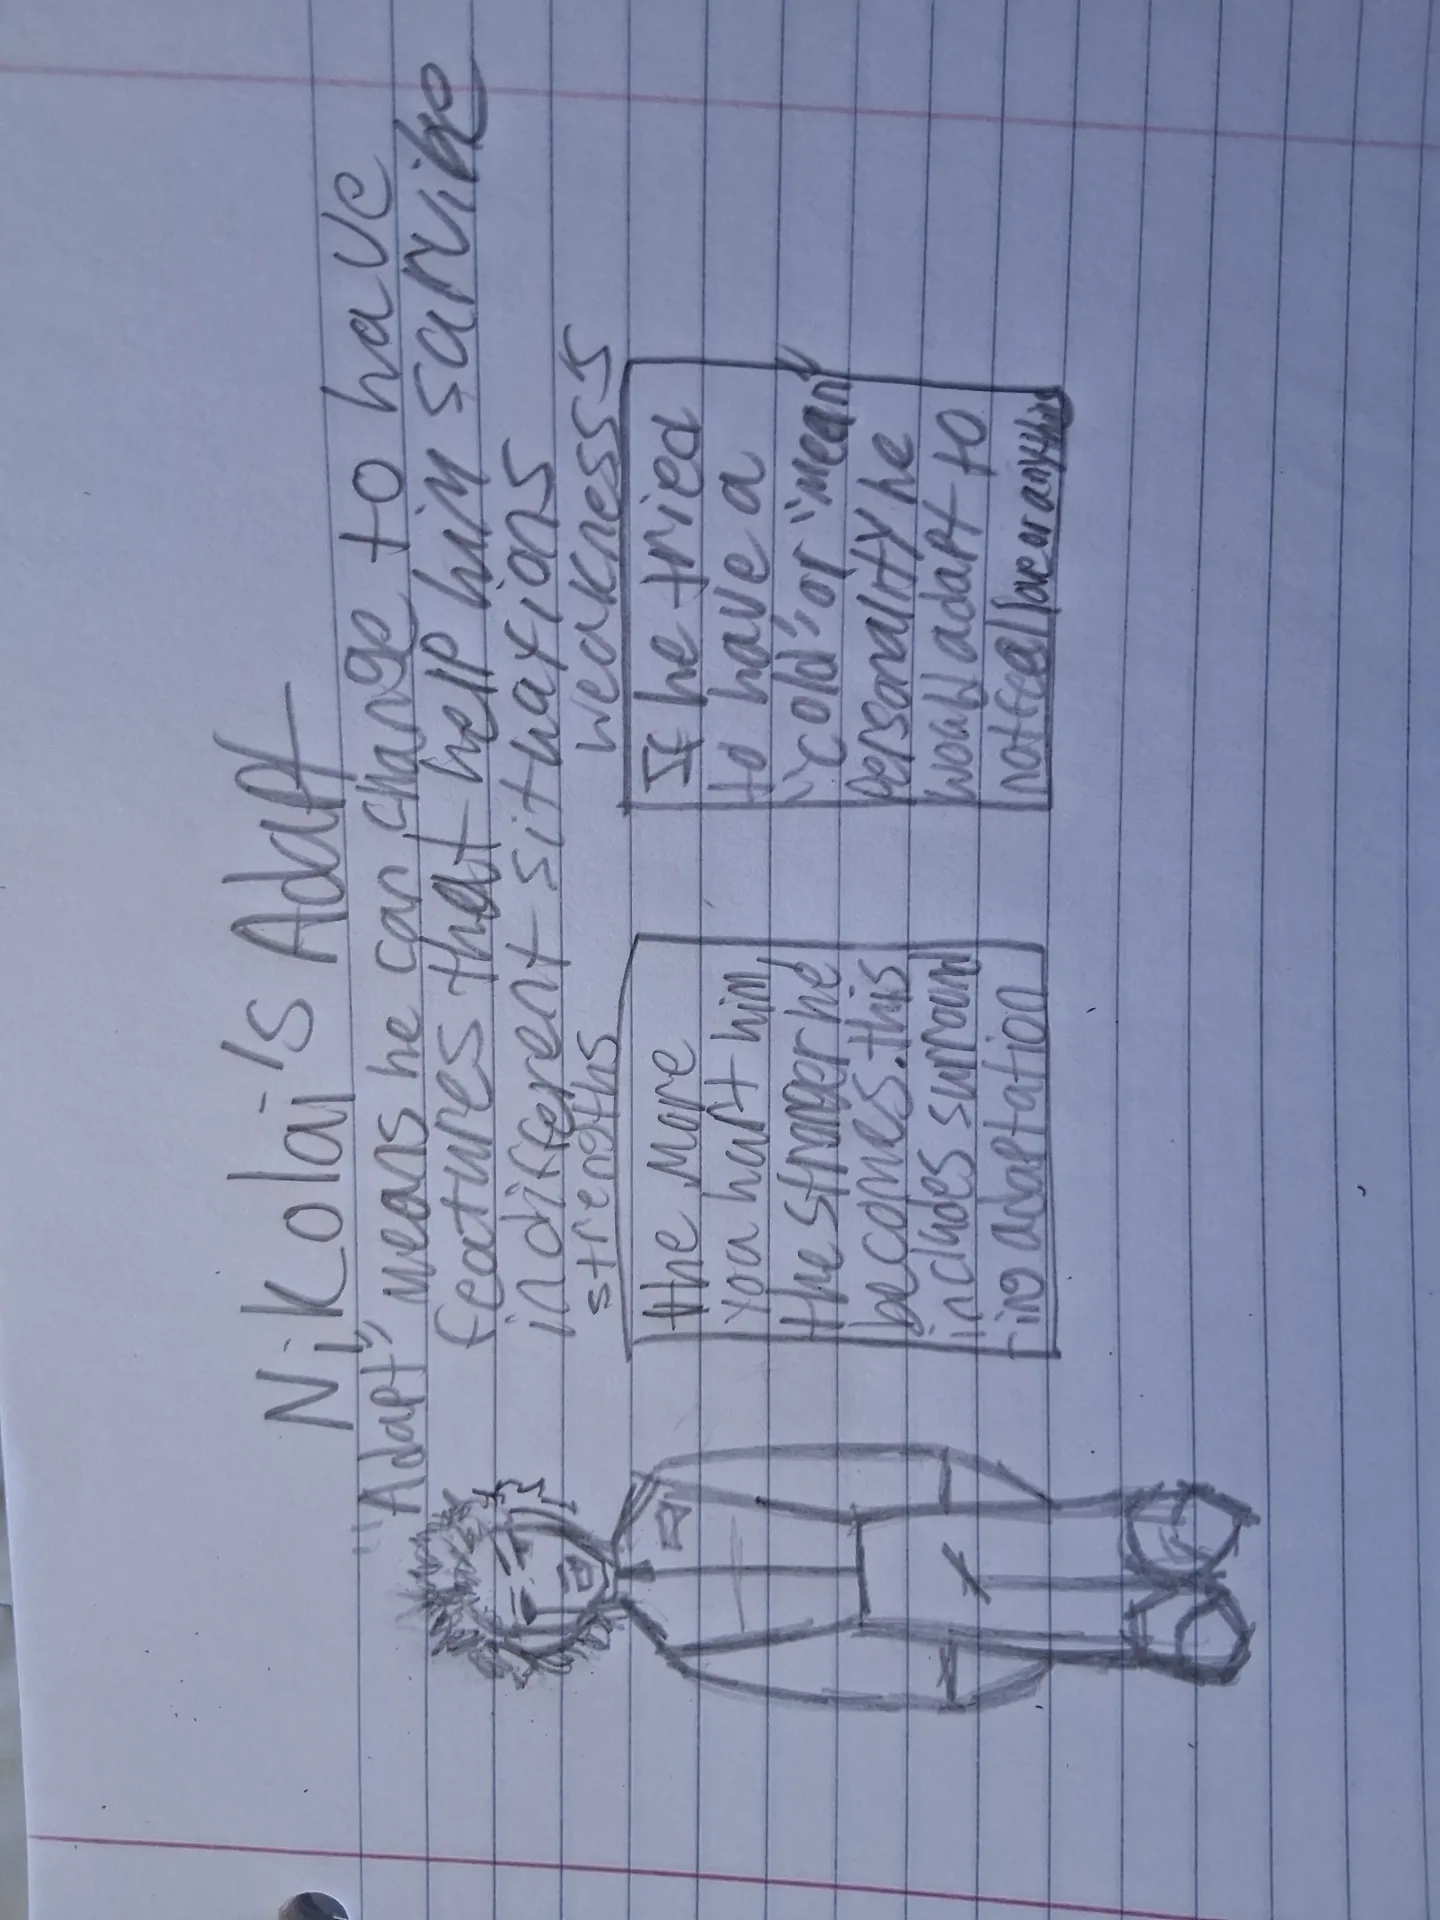 Nikolai's Adapt
"Adapt", means he can change to have
features that help him survive
in different situations
strengths
the more
you hurt him,
the stronger he
becomes. this
includes surround
ing adaptation
weakness
If he tried
to have a
"cold", or "mean"
personality he
would adapt to
not feel love or anything